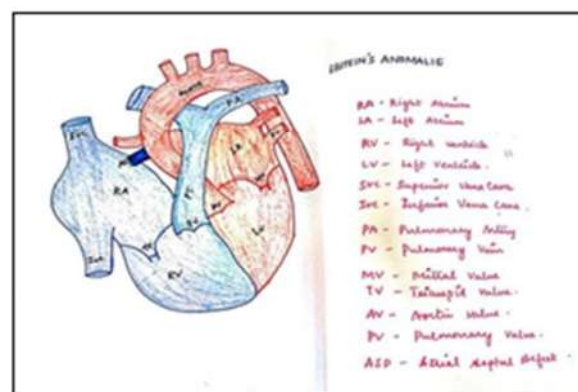 EBSTEIN'S ANOMALIE
RA - Right Atrium
LA - Left Atrium
RV - Right Ventricle
LV - Left Ventricle.
SVC - Superior Vena Cava
IVC - Inferior Vena Cava.
PA - Pulmonary Artery
PV - Pulmonary Vein
MV - Mitral Valve
TV - Tricuspid Valve.
AV - Aortic Valve.
PV - Pulmonary Valve.
ASD - Atrial Septal Defect.
Aorta
PA
SVC
LA
RA
LV
RV
IVC